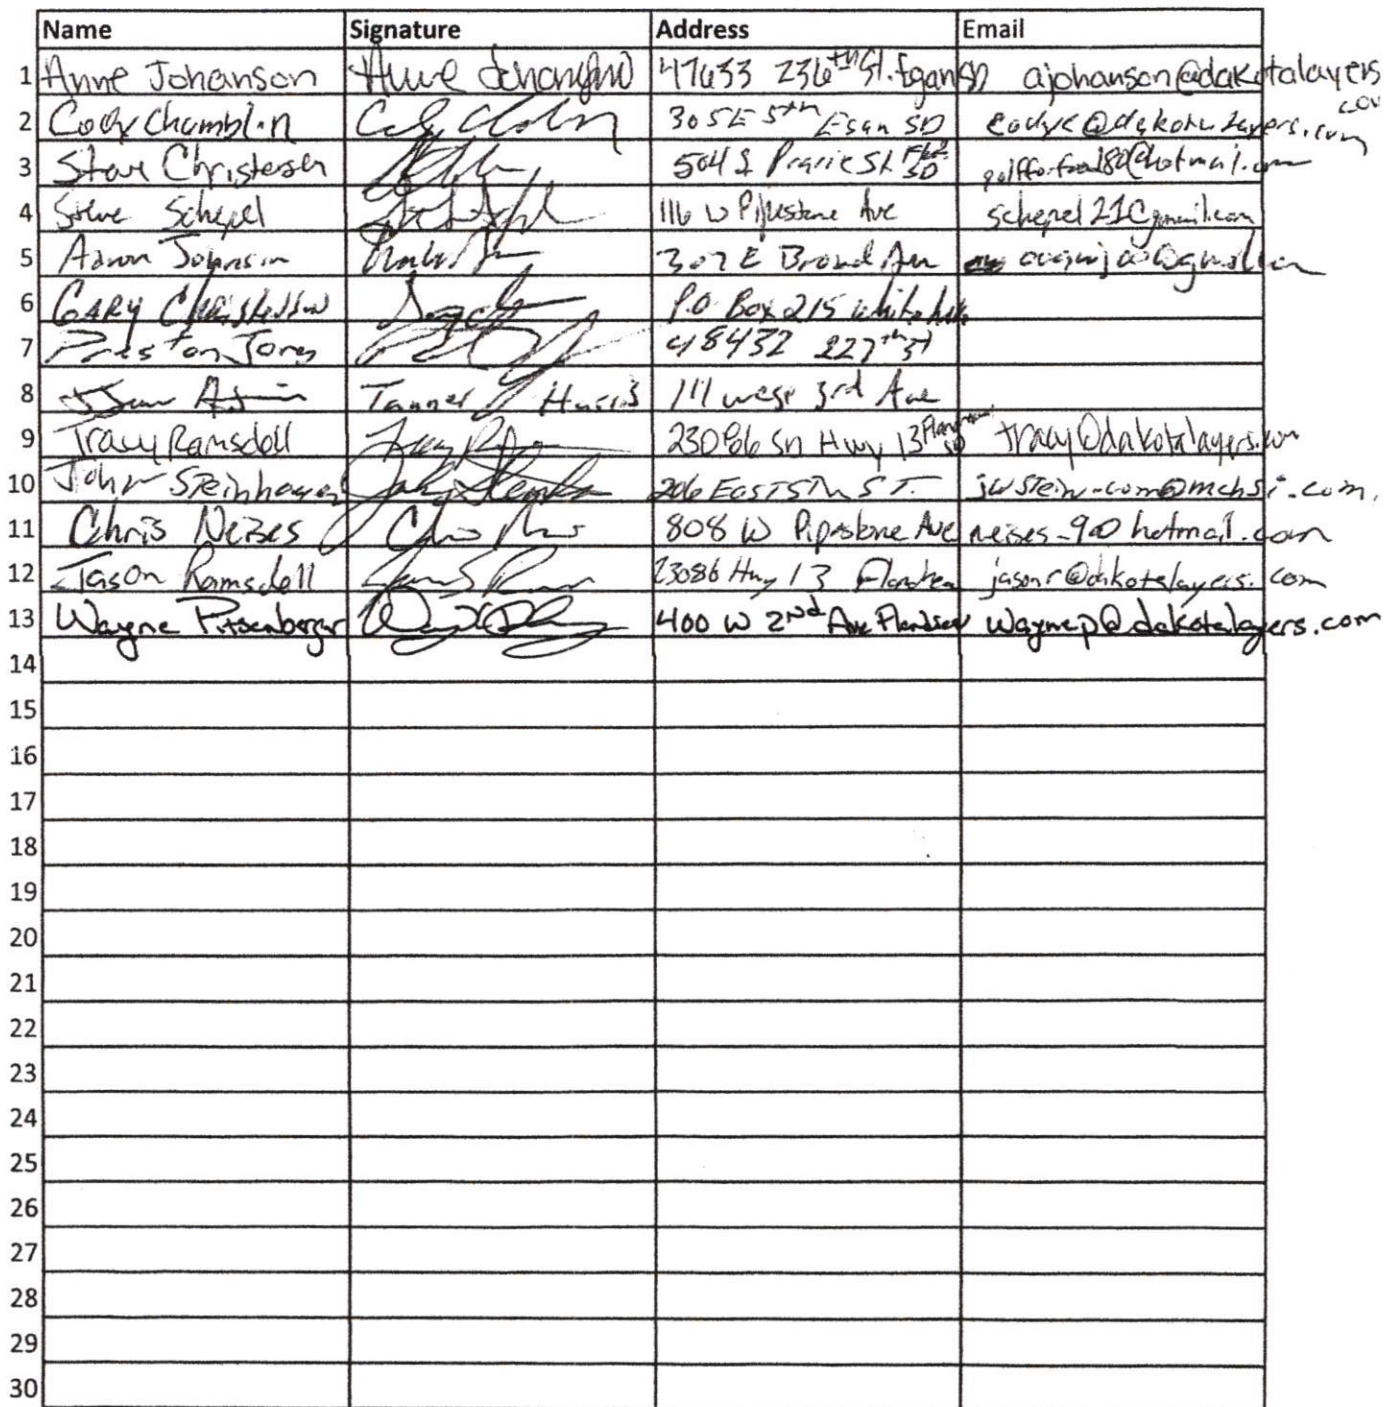 Name Signature Address Email
1 Anne Johanson Anne Johanson 47633 236th St. Egan SD ajohanson@dakotalayers.com
2 Cody Chamblin 305 E 5th Egan SD codyc@dakotalayers.com
3 Steve Christensen 504 S Prairie St SD @hotmail.com
4 Steve Schepel 116 W Pipestone Ave schepel21@gmail.com
5 Aaron Johnson 307 E Broad Ave
6 Gary Christensen P.O Box 215 White
7 Preston Jones 48432 227th St
8 Tanner Harris 111 west 3rd Ave
9 Tracy Ramsdell 23086 SD Hwy 13 tracy@dakotalayers.com
10 John Steinhauer 206 East 5th ST. jwstein-com@mchsi.com
11 Chris Neises 808 W Pipestone Ave neises_9@hotmail.com
12 Jason Ramsdell 23086 Hwy 13 Flandreau jasonr@dakotalayers.com
13 Wayne Pitsenberger 400 W 2nd Ave Flandreau waynep@dakotalayers.com
14
15
16
17
18
19
20
21
22
23
24
25
26
27
28
29
30